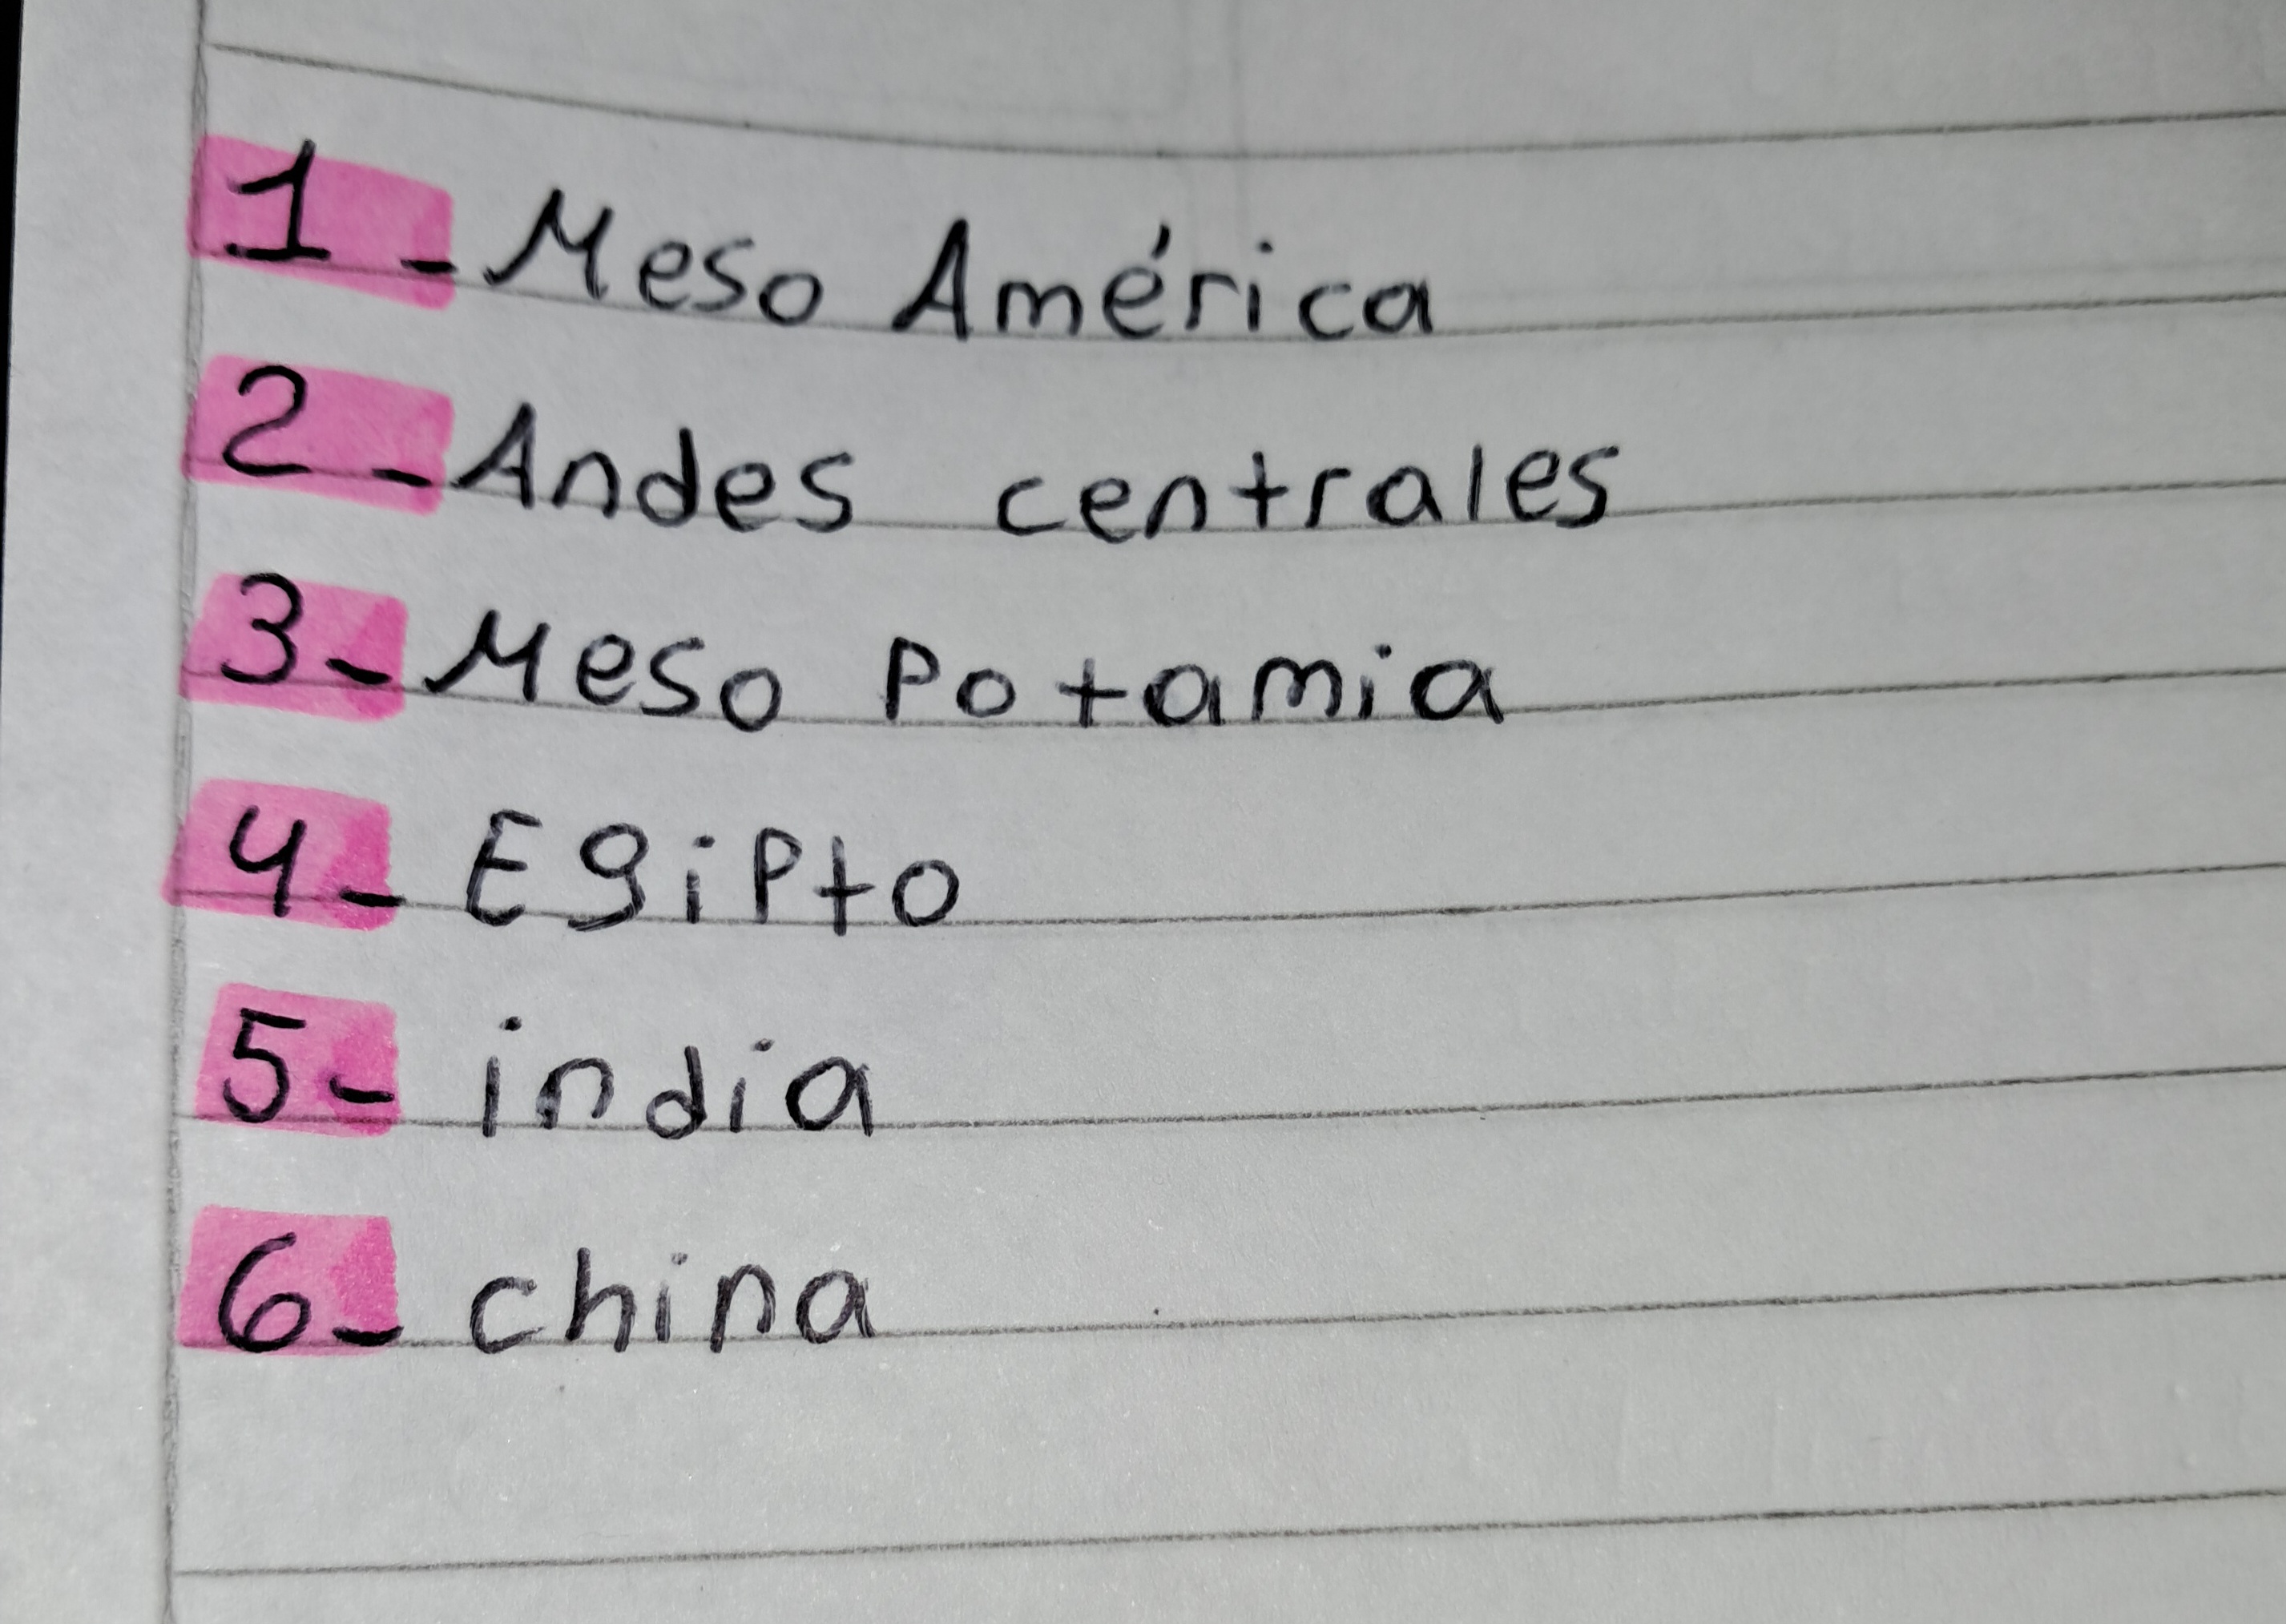 1- Meso América
2- Andes centrales
3- Meso Potamia
4- Egipto
5- india
6- china